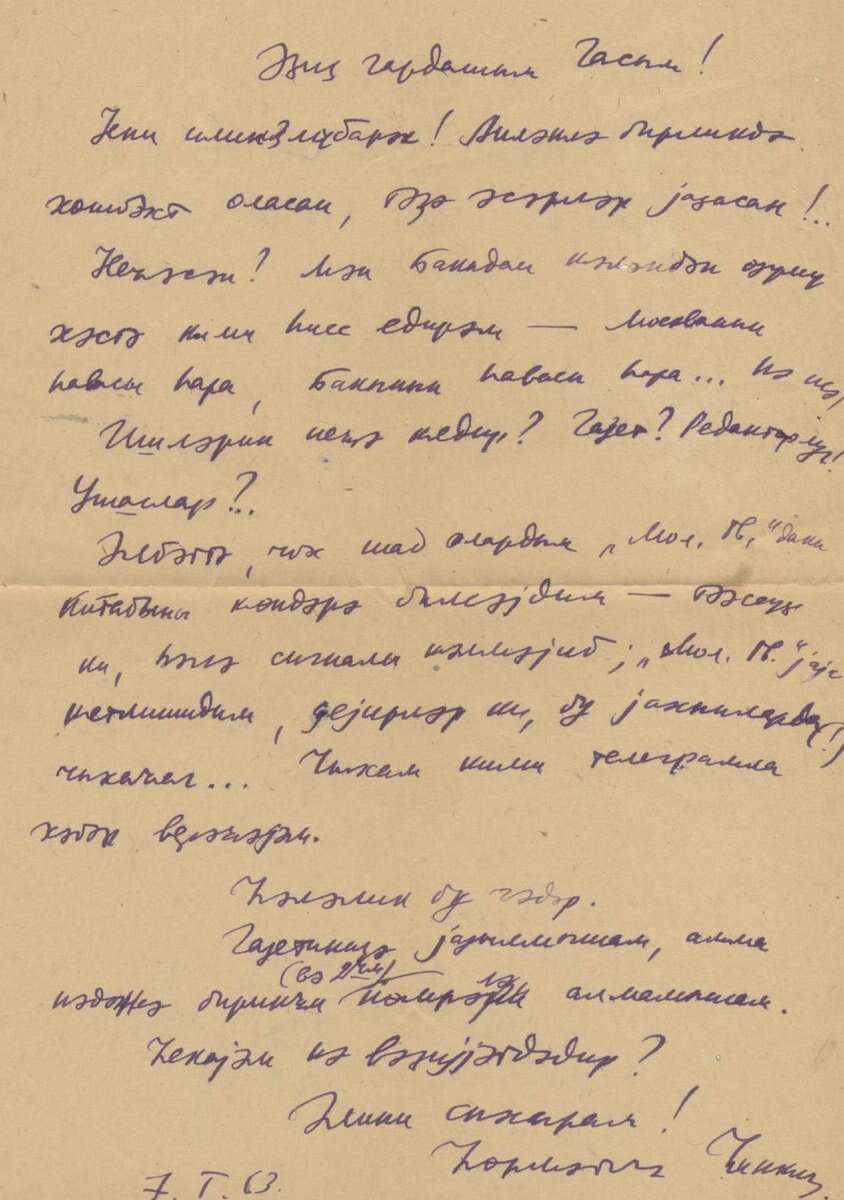 Әзиз гардашым Гасым!
Јени илин мүбарәк! Аиләнлә бирликдә
хошбәхт оласан, тәзә әсәрләр јазасан!..
Нечәсән? Мән Бакыдан кәләндән өзүмү
хәстә кими һисс едирәм — Москванын
һавасы һара, Бакынын һавасы һара... Нә исә!
Ишләрин нечә кедир? Гәзет? Редакторлуг?
Ушаглар?..
Әлбәттә, чох шад олардым „Мол. Гв."дакы
китабыны көндәрә билсәјдим — Тәәссүф
ки, һәлә сигналы кәлмәјиб; „Мол. Гв."јајә
кетмишдим, дејирләр ки, бу јахынларда(!)
чыхачаг... Чыхан кими телеграмла
хәбәр верәчәјәм.
Һәләлик бу гәдәр.
Гәзетинизә јазылмышам, амма
(вә 2-чи)
нәдәнсә биринчи нөмрәләри алмамышам.
Һекајәм нә вәзијјәтдәдир?
Әлини сыхырам!
Һөрмәтлә Чинкиз.
7. I. 63.